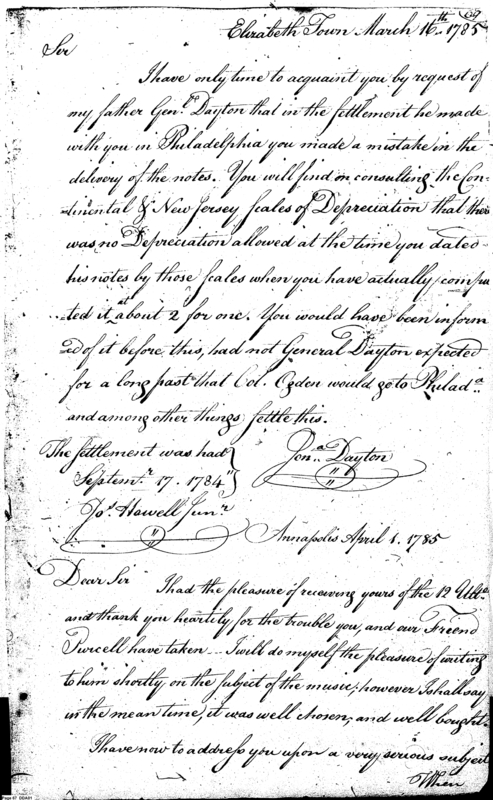 Elizabeth Town March 16th. 1785
Sir
I have only time to acquaint you by request of
my father Genl. Dayton that in the settlement he made
with you in Philadelphia you made a mistake in the
delivery of the notes. You will find on consulting the Con-
-tinental & New Jersey scales of Depreciation that there
was no Depreciation allowed at the time you dated
his notes by those scales when you have actually compu
-ted it at about 2 for one. You would have been inform
Ed of it before this, had not General Dayton expected
for a long past that Col. Ogden would go to Philada.
and among other things settle this.
The settlement was had
Septemr. 17. 1784
Jona. Dayton
Jos. Howell Junr
Annapolis April 1. 1785
Dear Sir
I had the pleasure of receiving yours of the 12 Ulto.
and thank you heartily for the trouble you, and our Friend
Purcell have taken - I will do myself the pleasure of writing
to him shortly on the subject of the music; however I shall say
in the mean time, it was well chosen, and well bought.
I have now to address you upon a very serious subject
When